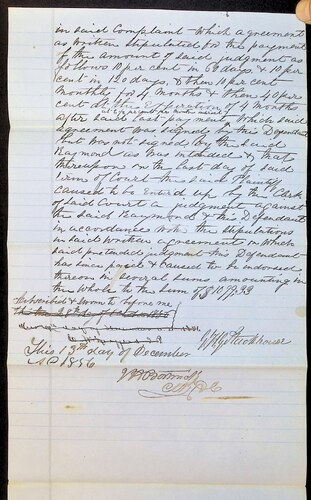 in said Complaint which agreement
as written stipulated for the payment
of the amount of said judgment as
follows 10 per cent in 60 days & 10 per
cent in 120 days, & then 10 per cent
Monthly for 4 Months & then 40 per
cent at the Expiration of 4 Months
after said last payment Which said
agreement was signed by this Defendant
but was not signed by the said
Raymond as was intended & that
thereupon on the last day of said
Term of Court the said Plaintiff
caused to be Enterd up by the Clerk
of said Court a judgment against
the said Raymond & this Defendant
in accordance with the stipulations
in said Written agreement on Which
said pretended judgment this Defendant
has since paid & caused to be indorsed
thereon in several sums amounting in
the Whole to the Sum of
Subscribed & sworn to before me
This 13th day of December
AD 1856